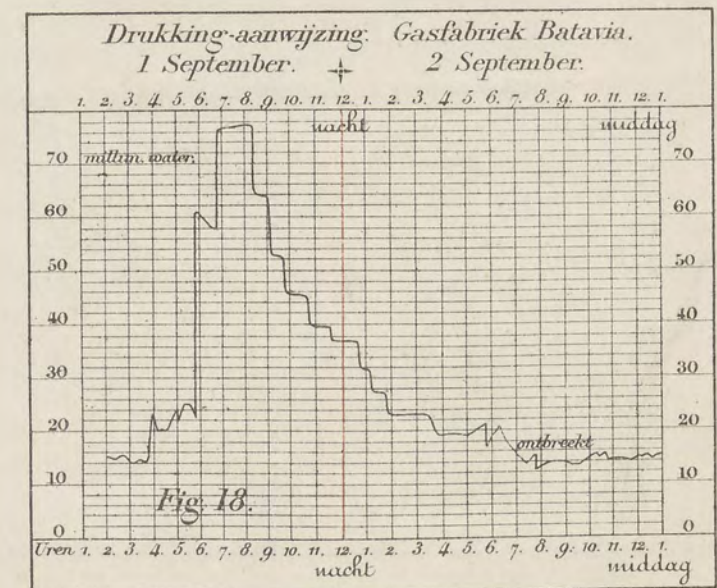 Drukking-aanwijzing. Gasfabriek Batavia.
1 September. 2 September.
1. 2. 3. 4. 5. 6. 7. 8. 9. 10. 11. 12. 1. 2. 3. 4. 5. 6. 7. 8. 9. 10. 11. 12. 1.
nacht middag
70 millim. water. 70
60 60
50 50
40 40
30 30
20 20
ontbreekt
10 10
Fig. 18.
0 0
Uren 1. 2. 3. 4. 5. 6. 7. 8. 9. 10. 11. 12. 1. 2. 3. 4. 5. 6. 7. 8. 9. 10. 11. 12. 1.
nacht middag